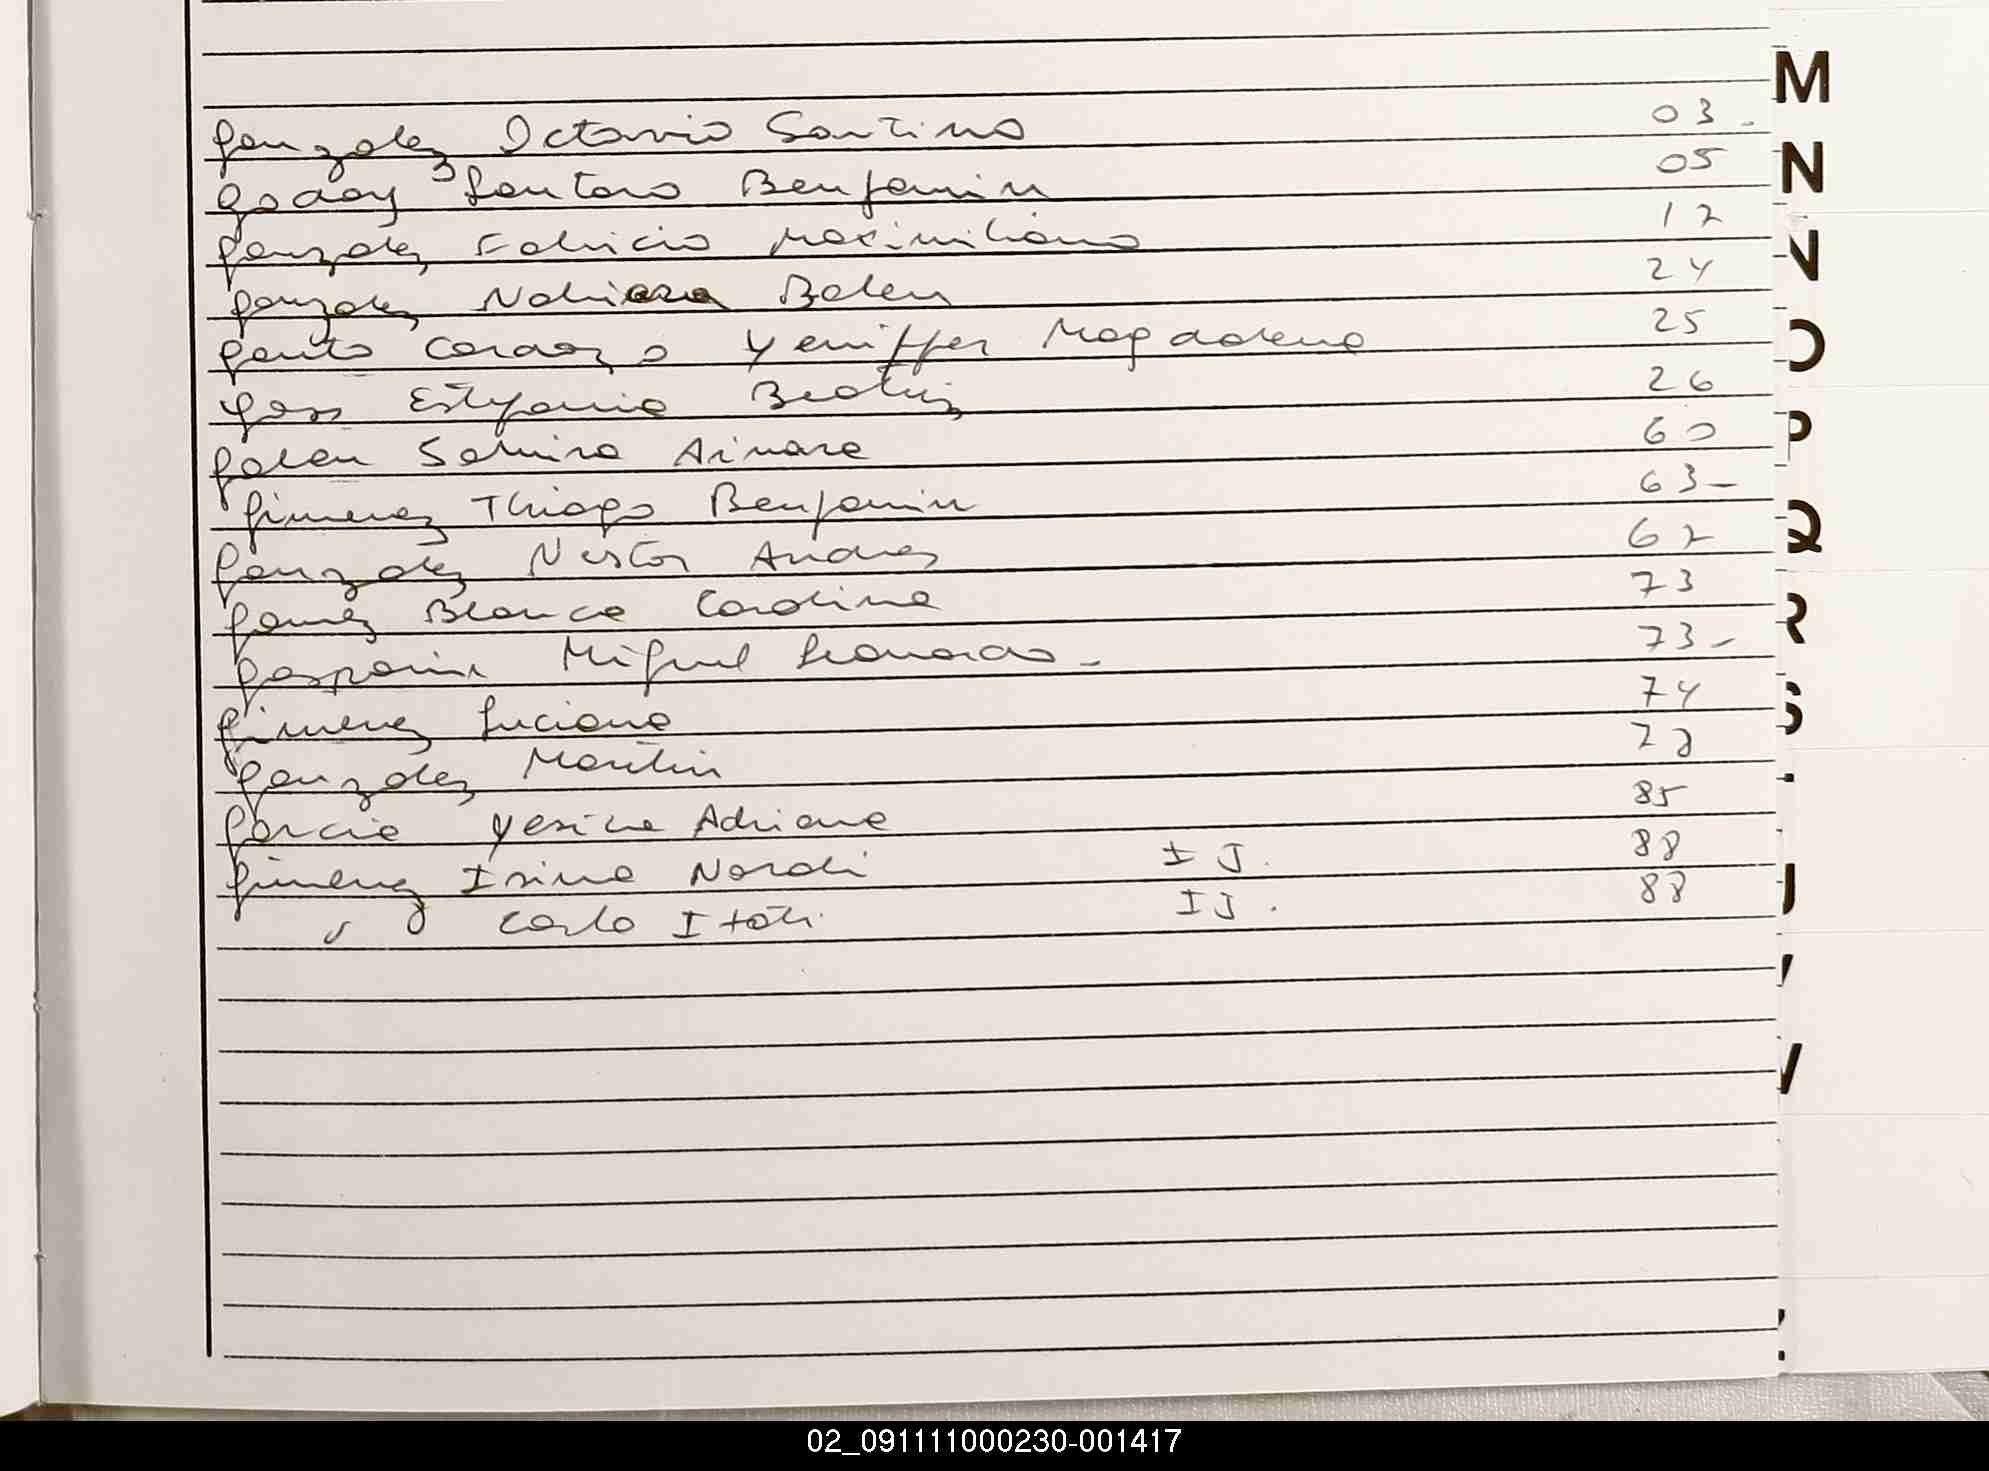 Gonzalez Octavio Santino 03-
Godoy Santoro Benjamin 05
Gonzalez Fabricio Maximiliano 12
Gonzalez Nahiara Belen 24
Gauto Cardozo Yeniffer Magdalena 25
Goss Estefania Beatriz 26
Galeu Samira Ainara 60
Gimenez Thiago Benjamin 63-
Gonzalez Nestor Andres 62
Gomez Blanca Carolina 73
Gasparin Miguel Leonardo - 73-
Gimenez Luciana 74
Gonzalez Martin 78
Garcia Yesica Adriana 85
Gimenez Isina Nardi IJ. 88
Carlo Itati IJ. 88
M
N
N
O
P
Q
R
S
J
V
V
02_091111000230-001417